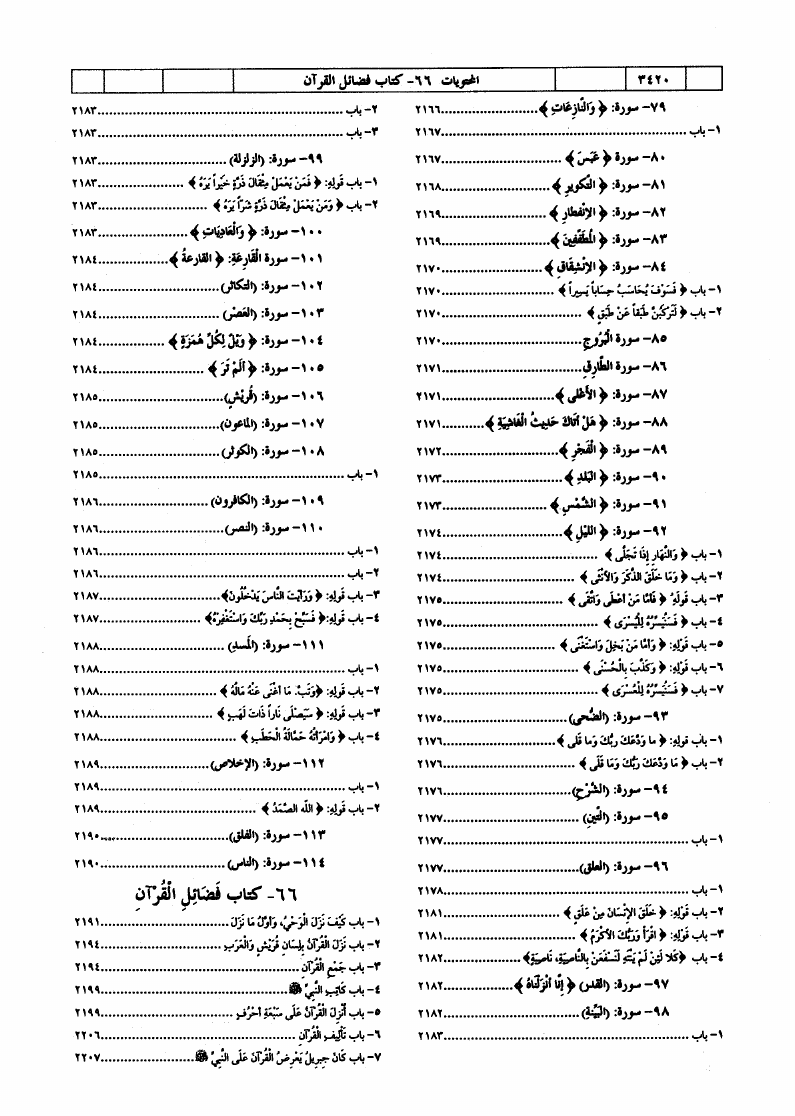 ٣٤٢٠ المحتويات ٦٦- كتاب فضائل القرآن
٧٩- سورة: ﴿ وَالنَّازِعَاتِ ﴾..........................٢١٦٦
١- باب..........................٢١٦٧
٨٠- سورة ﴿ عَبَسَ ﴾..........................٢١٦٧
٨١- سورة: ﴿ التَّكْوِيرِ ﴾..........................٢١٦٨
٨٢- سورة: ﴿ الانْفِطَارِ ﴾..........................٢١٦٩
٨٣- سورة: ﴿ المُطَفِّفِينَ ﴾..........................٢١٦٩
٨٤- سورة: ﴿ الانْشِقَاقِ ﴾..........................٢١٧٠
١- باب ﴿ فَسَوْفَ يُحَاسَبُ حِسَاباً يَسِيراً ﴾..........................٢١٧٠
٢- باب ﴿ لَتَرْكَبُنَّ طَبَقاً عَنْ طَبَقٍ ﴾..........................٢١٧٠
٨٥- سورة الْبُرُوجِ..........................٢١٧٠
٨٦- سورة الطَّارِقِ..........................٢١٧١
٨٧- سورة: ﴿ الأَعْلَى ﴾..........................٢١٧١
٨٨- سورة: ﴿ هَلْ أَتَاكَ حَدِيثُ الْغَاشِيَةِ ﴾..........................٢١٧١
٨٩- سورة: ﴿ الْفَجْرِ ﴾..........................٢١٧٢
٩٠- سورة: ﴿ الْبَلَدِ ﴾..........................٢١٧٣
٩١- سورة: ﴿ الشَّمْسِ ﴾..........................٢١٧٣
٩٢- سورة: ﴿ اللَّيْلِ ﴾..........................٢١٧٤
١- باب ﴿ وَالنَّهَارِ إِذَا تَجَلَّى ﴾..........................٢١٧٤
٢- باب ﴿ وَمَا خَلَقَ الذَّكَرَ وَالأُنْثَى ﴾..........................٢١٧٤
٣- باب قَولِهِ: ﴿ فَأَمَّا مَنْ أَعْطَى وَاتَّقَى ﴾..........................٢١٧٥
٤- باب ﴿ فَسَنُيَسِّرُهُ لِلْيُسْرَى ﴾..........................٢١٧٥
٥- باب قَولِهِ: ﴿ وَأَمَّا مَنْ بَخِلَ وَاسْتَغْنَى ﴾..........................٢١٧٥
٦- باب قَولِهِ: ﴿ وَكَذَّبَ بِالْحُسْنَى ﴾..........................٢١٧٥
٧- باب ﴿ فَسَنُيَسِّرُهُ لِلْعُسْرَى ﴾..........................٢١٧٥
٩٣- سورة: (الضُّحى)..........................٢١٧٥
١- باب قوله: ﴿ ما وَدَّعَكَ رَبُّكَ وَما قَلَى ﴾..........................٢١٧٦
٢- باب ﴿ مَا وَدَّعَكَ رَبُّكَ وَمَا قَلَى ﴾..........................٢١٧٦
٩٤- سورة: (الشَّرْحِ)..........................٢١٧٦
٩٥- سورة: (التِّينِ)..........................٢١٧٧
١- باب..........................٢١٧٧
٩٦- سورة: (العلق)..........................٢١٧٧
١- باب..........................٢١٧٨
٢- باب قوله: ﴿ خَلَقَ الإِنْسَانَ مِنْ عَلَقٍ ﴾..........................٢١٨١
٣- باب قَولِهِ: ﴿ اقْرَأْ وَرَبُّكَ الأَكْرَمُ ﴾..........................٢١٨١
٤- باب ﴿كَلَّا لَئِنْ لَمْ يَنْتَهِ لَنَسْفَعَنْ بِالنَّاصِيَةِ، نَاصِيَةٍ﴾..........................٢١٨٢
٩٧- سورة: (القدر) ﴿ إِنَّا أَنْزَلْنَاهُ ﴾..........................٢١٨٢
٩٨- سورة: (البَيِّنَةِ)..........................٢١٨٢
١- باب..........................٢١٨٣
٢- باب..........................٢١٨٣
٣- باب..........................٢١٨٣
٩٩- سورة: (الزلزلة)..........................٢١٨٣
١- باب قولِهِ: ﴿ فَمَنْ يَعْمَلْ مِثْقَالَ ذَرَّةٍ خَيْراً يَرَهُ ﴾..........................٢١٨٣
٢- باب ﴿ وَمَنْ يَعْمَلْ مِثْقَالَ ذَرَّةٍ شَرّاً يَرَهُ ﴾..........................٢١٨٣
١٠٠- سورة: ﴿ وَالْعَادِيَاتِ ﴾..........................٢١٨٣
١٠١- سورة الْقَارِعَةِ: ﴿ القارعةُ ﴾..........................٢١٨٤
١٠٢- سورة: (التكاثر)..........................٢١٨٤
١٠٣- سورة: (العَصْرِ)..........................٢١٨٤
١٠٤- سورة: ﴿ وَيْلٌ لِكُلِّ هُمَزَةٍ ﴾..........................٢١٨٤
١٠٥- سورة: ﴿ أَلَمْ تَرَ ﴾..........................٢١٨٤
١٠٦- سورة: (قُرَيْشٍ)..........................٢١٨٥
١٠٧- سورة: (الماعون)..........................٢١٨٥
١٠٨- سورة: (الكوثر)..........................٢١٨٥
١- باب..........................٢١٨٥
١٠٩- سورة: (الكافرون)..........................٢١٨٦
١١٠- سورة: (النصر)..........................٢١٨٦
١- باب..........................٢١٨٦
٢- باب..........................٢١٨٦
٣- باب قوله: ﴿ وَرَأَيْتَ النَّاسَ يَدْخُلُونَ﴾..........................٢١٨٧
٤- باب قوله:﴿ فَسَبِّحْ بِحَمْدِ رَبِّكَ وَاسْتَغْفِرْهُ﴾..........................٢١٨٧
١١١- سورة: (المسد)..........................٢١٨٨
١- باب..........................٢١٨٨
٢- باب قَولِهِ: ﴿وَتَبَّ. مَا أَغْنَى عَنْهُ مَالُهُ ﴾..........................٢١٨٨
٣- باب قَولِهِ: ﴿ سَيَصْلَى نَاراً ذَاتَ لَهَبٍ ﴾..........................٢١٨٨
٤- باب ﴿ وَامْرَأَتُهُ حَمَّالَةُ الْحَطَبِ ﴾..........................٢١٨٨
١١٢- سورة: (الإخلاص)..........................٢١٨٩
١- باب..........................٢١٨٩
٢- باب قَولِهِ: ﴿ اللَّه الصَّمَدُ ﴾..........................٢١٨٩
١١٣- سورة: (الفلق)..........................٢١٩٠
١١٤- سورة: (الناس)..........................٢١٩٠
٦٦- كتاب فَضَائِلِ الْقُرْآنِ
١- باب كَيْفَ نَزَلَ الْوَحْيُ، وَأَوَّلُ مَا نَزَلَ..........................٢١٩١
٢- باب نَزَلَ الْقُرْآنُ بِلِسَانِ قُرَيْشٍ وَالْعَرَبِ..........................٢١٩٤
٣- باب جَمْعِ الْقُرْآنِ..........................٢١٩٤
٤- باب كَاتِبِ النَّبِيِّ ﷺ..........................٢١٩٩
٥- باب أُنْزِلَ الْقُرْآنُ عَلَى سَبْعَةِ أَحْرُفٍ..........................٢١٩٩
٦- باب تَأْلِيفِ الْقُرْآنِ..........................٢٢٠٦
٧- باب كَانَ جِبْرِيلُ يَعْرِضُ الْقُرْآنَ عَلَى النَّبِيِّ ﷺ..........................٢٢٠٧